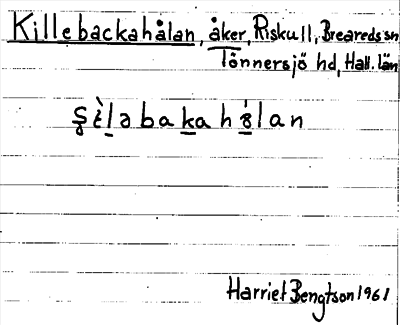 Killebackahålan, åker, Riskull, Breareds sn
Tönnersjö hd, Hall. län
Harriet Bengtson 1961